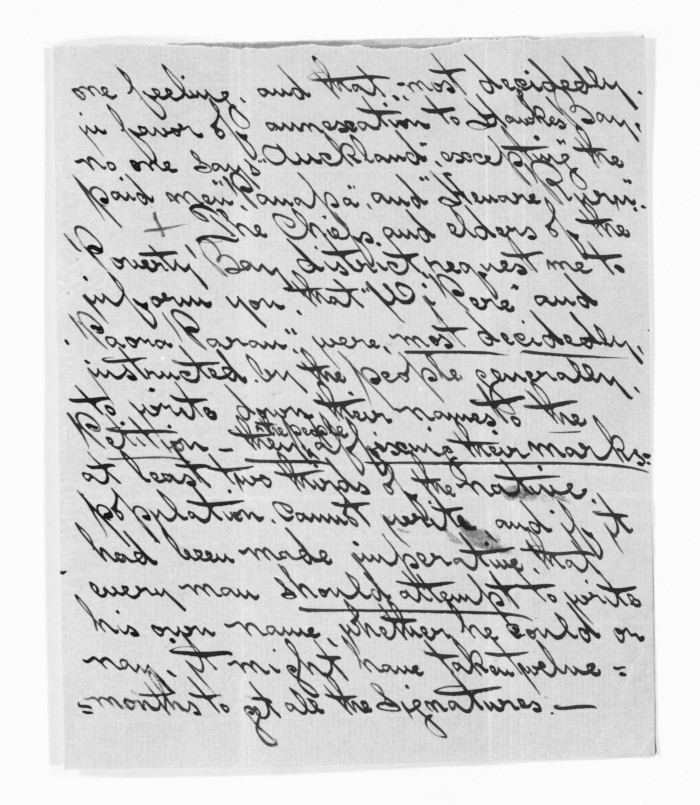 one feeling, and that "most decidedly,
in favor of annexation to Hawkes Bay;
no one says "Auckland", excepting the
paid men, "Panapa", and "Henare Turei".
+ The Chiefs and elders of the
Poverty Bay district request me to
inform you, that "Wi Pere" and
"Paora Parau", were, most decidedly,
instructed by the people generally,
to write down their names to the
Petition – they the people fixing their marks:
at least two thirds of the native
population. Cannot write and if it
had been made imperative, that
every man should attempt to write
his own name, whether he could or
nay, it might have taken twelve =
= months to get all the Signatures. —